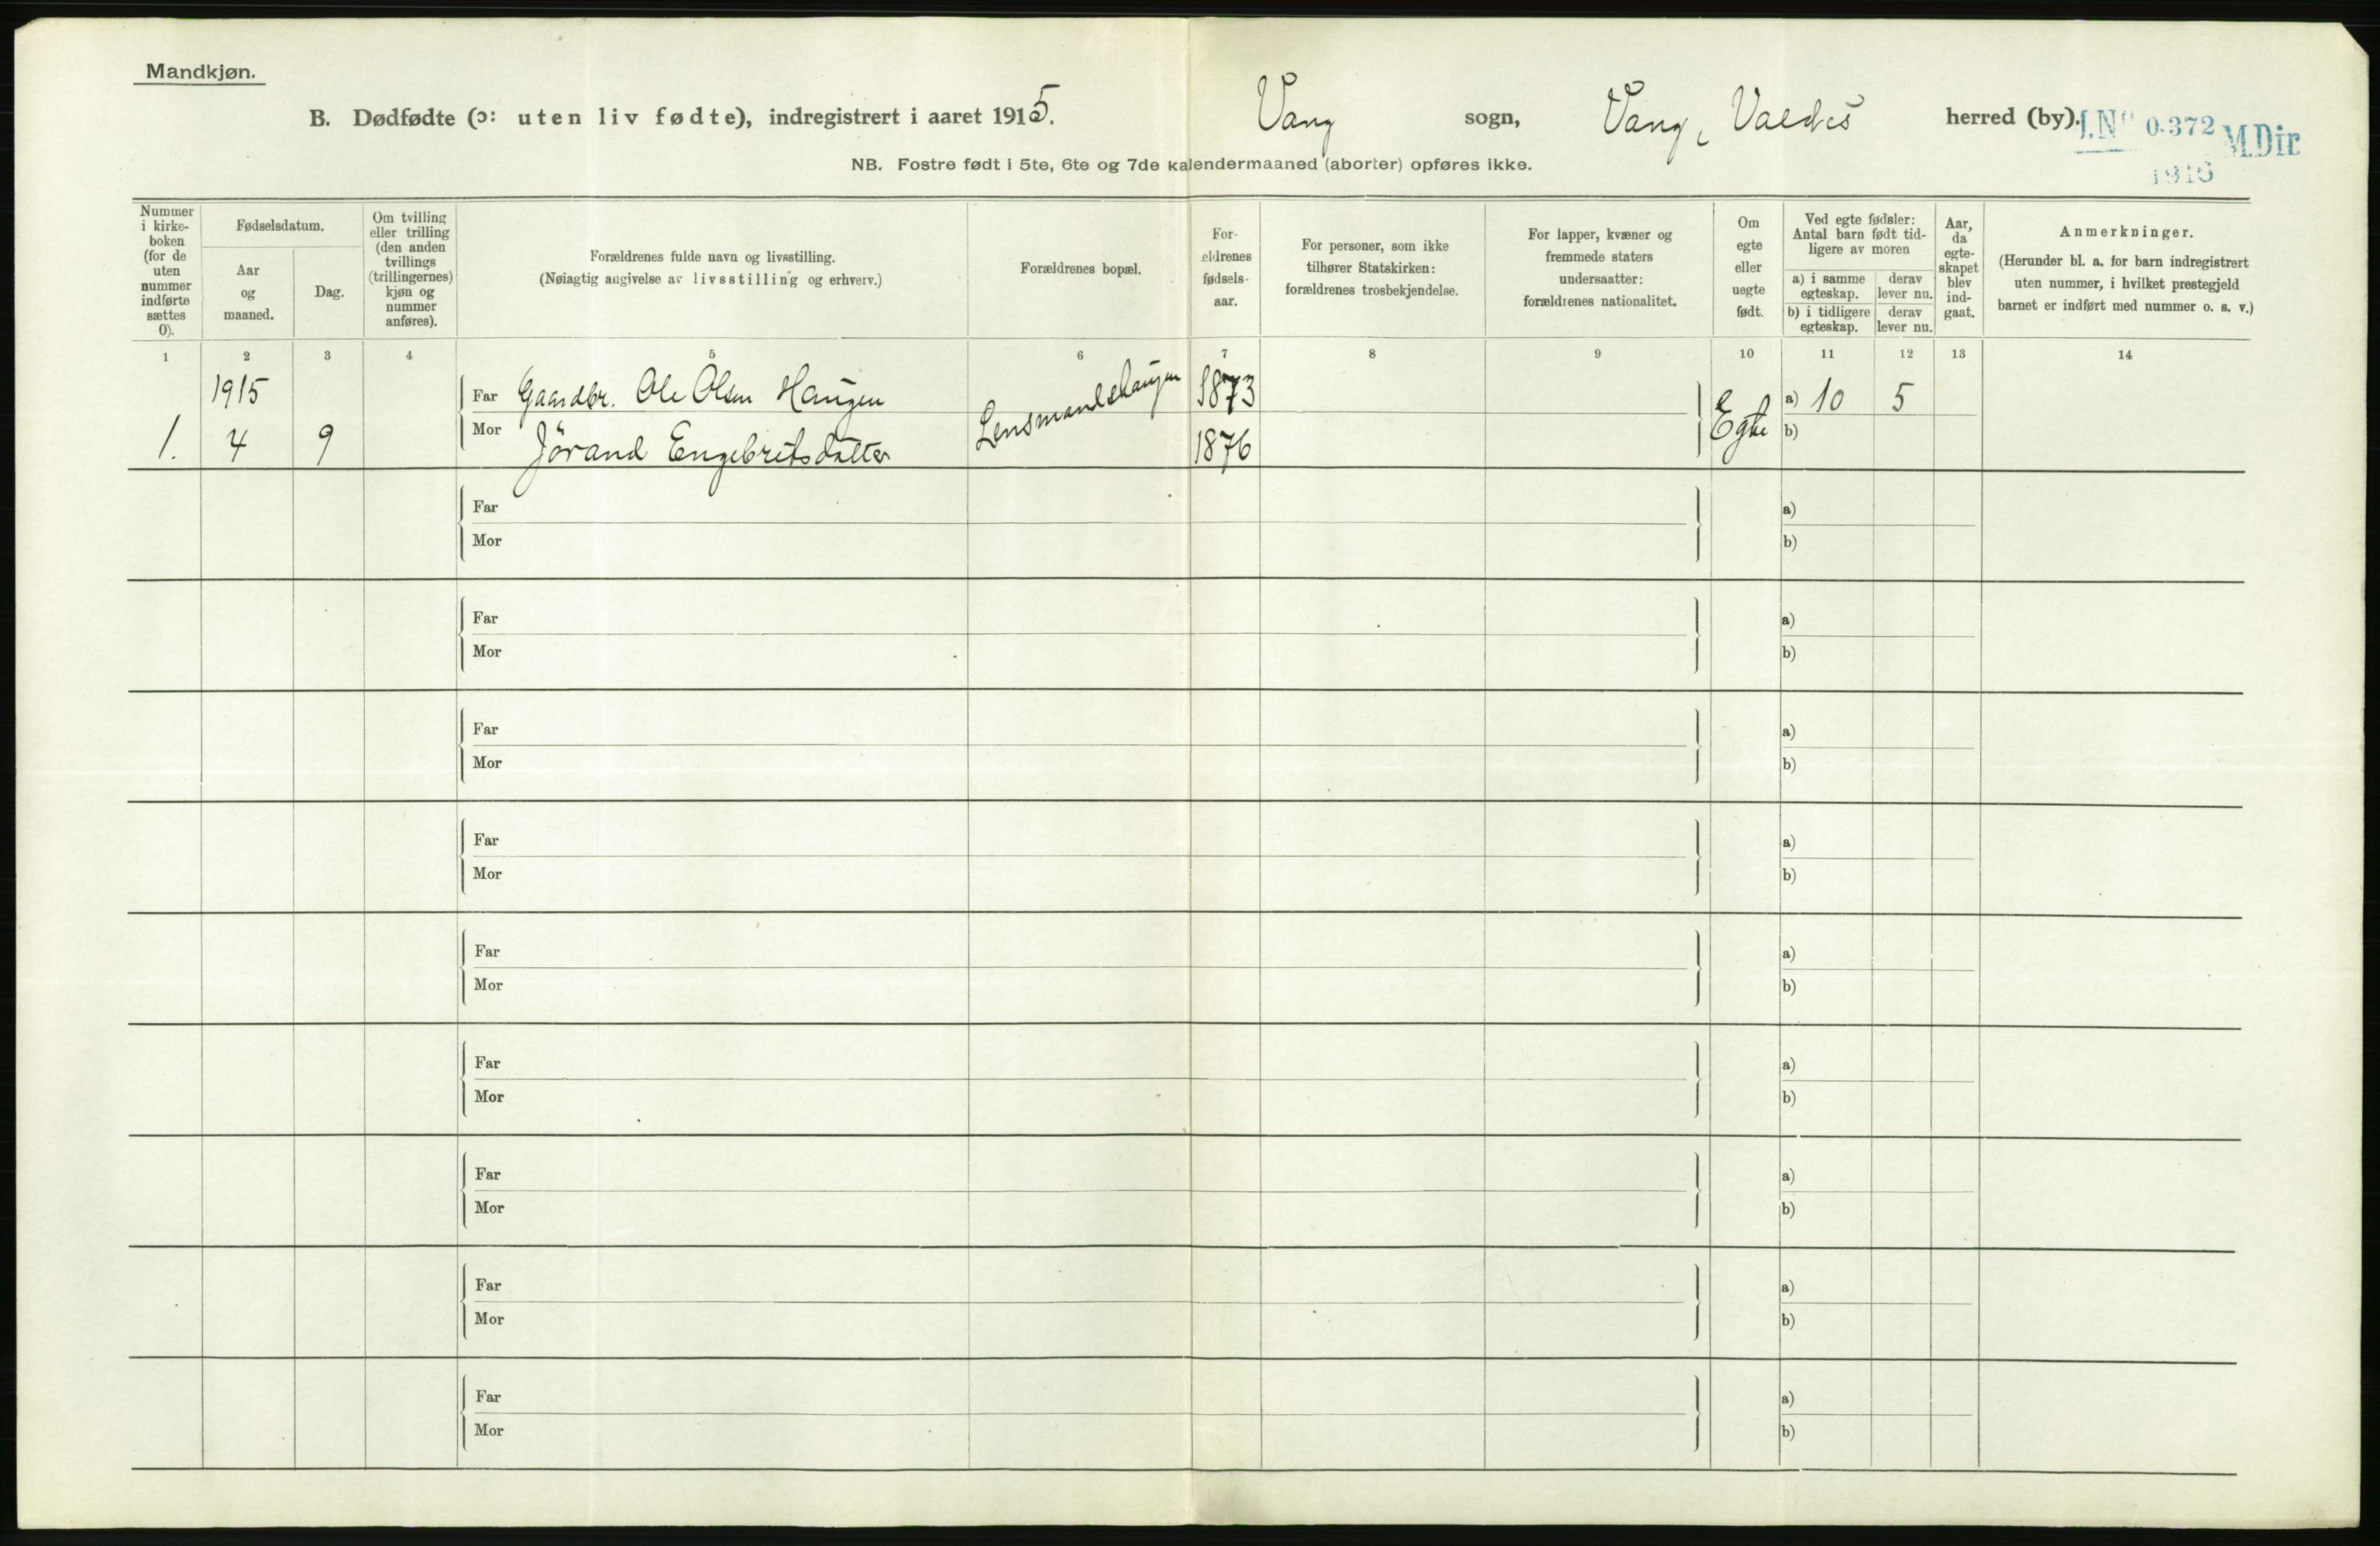 Mandkjøn.
B. Dødfødte (ɔ: uten liv fødte), indregistrert i aaret 1915. Vang sogn, Vang, Valdrs herred (by).
J.No 0.372 M.Dir.
1916
NB. Fostre født i 5te, 6te og 7de kalendermaaned (aborter) opføres ikke.
Nummer i kirke-boken (for de uten nummer indførte sættes 0).
Fødselsdatum.
Aar og maaned.
Dag.
Om tvilling eller trilling (den anden tvillings (trillingernes) kjøn og nummer anføres).
Forældrenes fulde navn og livsstilling.
(Nøiagtig angivelse av livsstilling og erhverv.)
Forældrenes bopæl.
For-ældrenes fødsels-aar.
For personer, som ikke tilhører Statskirken: forældrenes trosbekjendelse.
For lapper, kvæner og fremmede staters undersaatter: forældrenes nationalitet.
Om egte eller uegte født.
Ved egte fødsler: Antal barn født tid-ligere av moren
a) i samme egteskap. derav lever nu.
b) i tidligere egteskap. derav lever nu.
Aar, da egte-skapet blev ind-gaat.
Anmerkninger.
(Herunder bl. a. for barn indregistrert uten nummer, i hvilket prestegjeld barnet er indført med nummer o. s. v.)
1 2 3 4 5 6 7 8 9 10 11 12 13 14
1915 Far Gaardbr. Ole Olsen Haugen Lensmandshaugen 1873 Egte a) 10 5
1. 4 9 Mor Jørand Engebritsdatter 1876 b)
Far a)
Mor b)
Far a)
Mor b)
Far a)
Mor b)
Far a)
Mor b)
Far a)
Mor b)
Far a)
Mor b)
Far a)
Mor b)
Far a)
Mor b)
Far a)
Mor b)